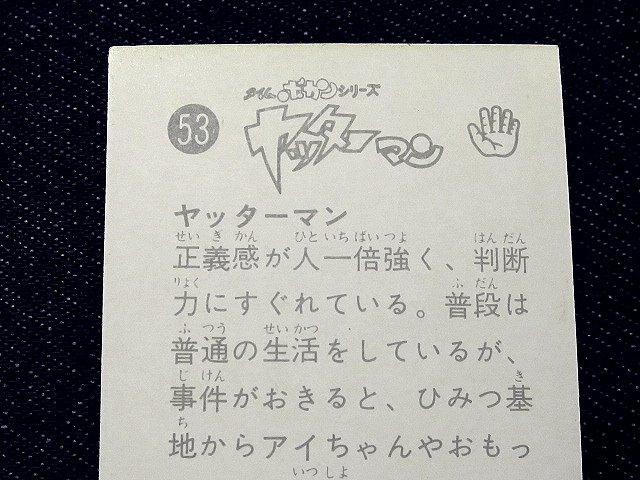 53
タイムボカンシリーズ
ヤッターマン
ヤッターマン
せいぎかん ひといちばいつよ はんだん
正義感が人一倍強く、判断
りょく ふだん
力にすぐれている。普段は
ふつう せいかつ
普通の生活をしているが、
じけん き
事件がおきると、ひみつ基
ち
地からアイちゃんやおもっ
いつしよ